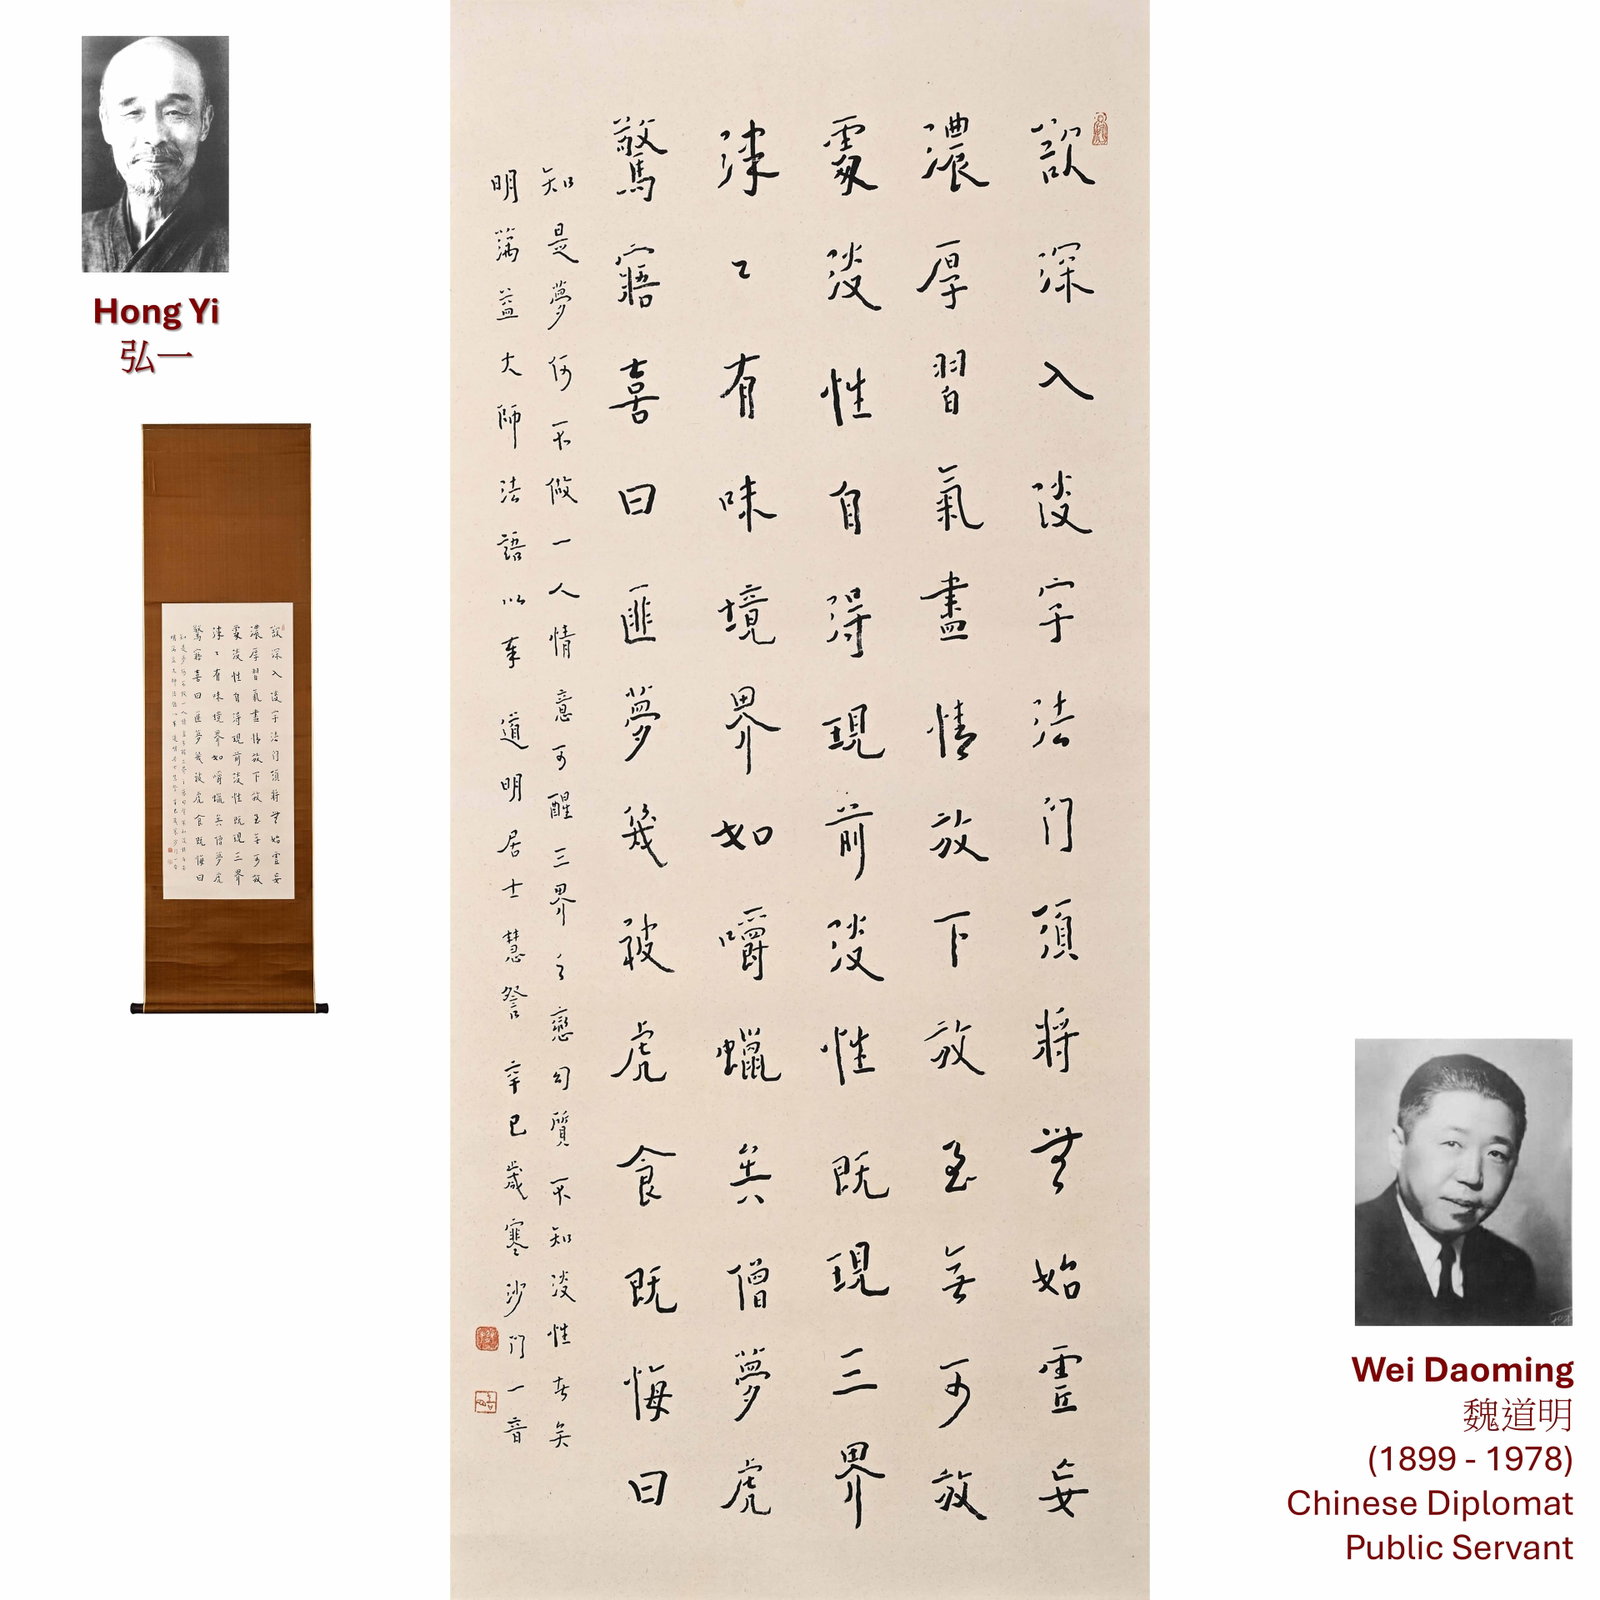 Hong Yi
弘一
欲深入淡字法门須将無始虛妄
濃厚習氣盡情放下放至無可放
處淡性自得現前淡性既現三界
津々有味境界如嚼蠟矣僧夢虎
驚寤喜曰匪夢幾被虎食既悔曰
知是夢何不做一人情意可醒三界之戀幻質不知淡性者矣
明蕅益大師法語以奉 道明居士慧詧 辛巳歲寒沙门一音
Wei Daoming
魏道明
(1899 - 1978)
Chinese Diplomat
Public Servant